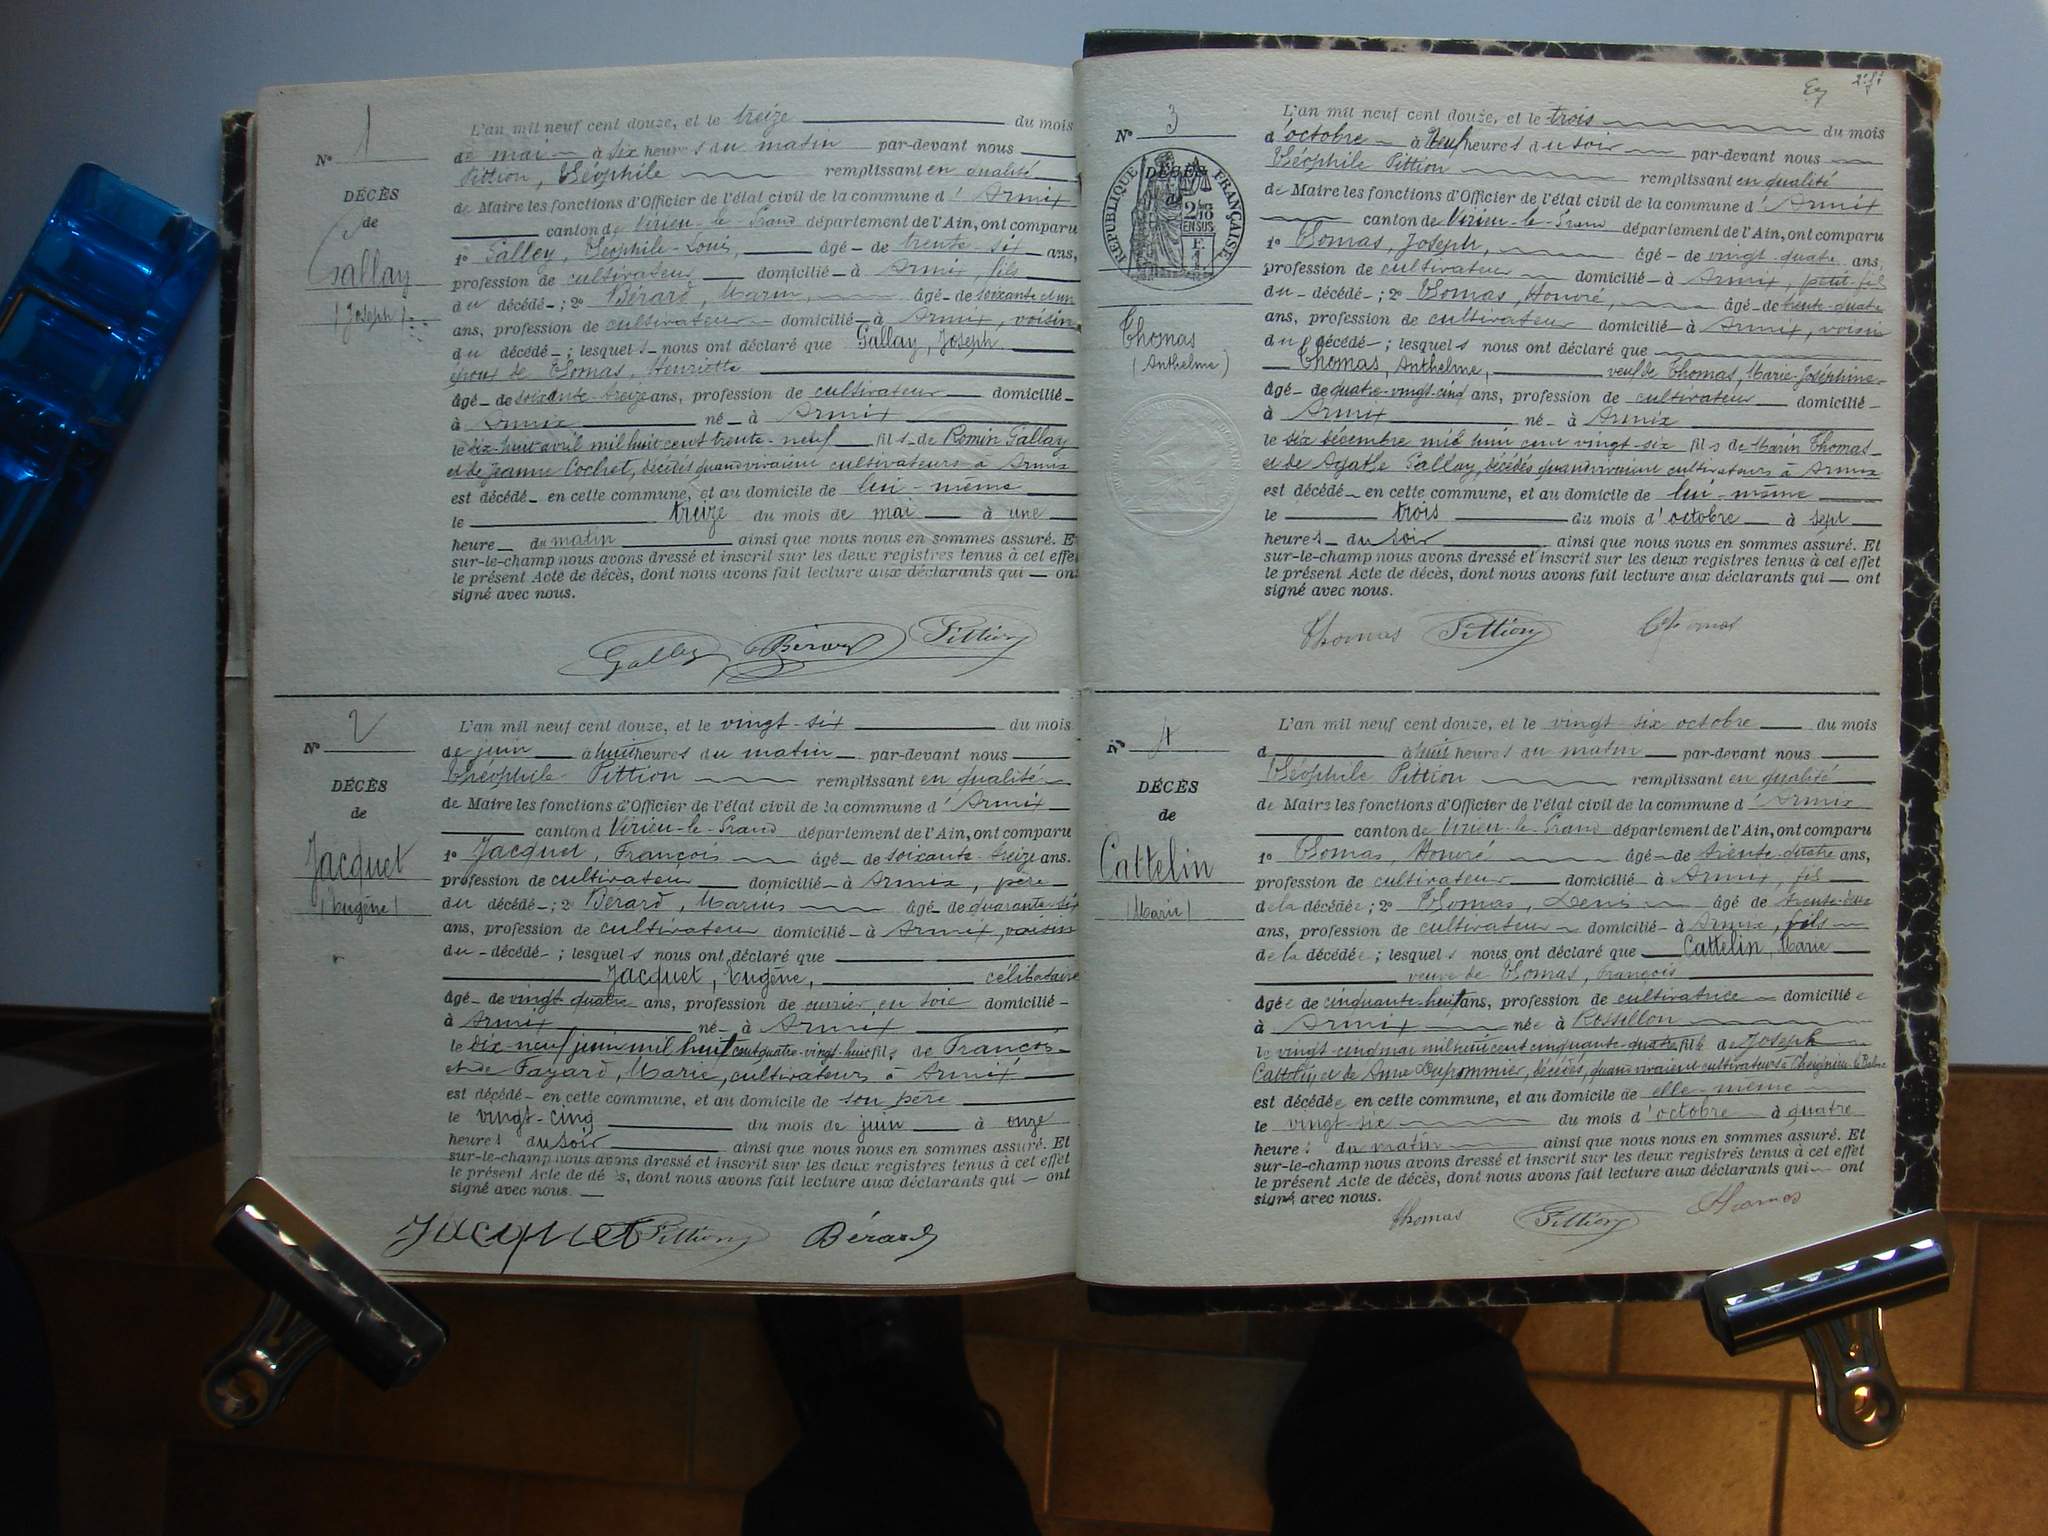 N° 1
DÉCÈS
de
Gallay
(Joseph)
L'an mil neuf cent douze, et le treize du mois
de mai à six heures du matin par-devant nous
Pittion, Théophile remplissant en qualité
de Maire les fonctions d'Officier de l'état civil de la commune d'Armix
canton de Virieu-le-Grand département de l'Ain, ont comparu
1° Gallay, Théophile-Louis, âgé de trente-six ans,
profession de cultivateur domicilié à Armix, fils
du décédé ; 2° Bérard, Marin, âgé de soixante et un
ans, profession de cultivateur domicilié à Armix, voisin
du décédé ; lesquels nous ont déclaré que Gallay, Joseph
époux de Thomas, Henriette
âgé de soixante-treize ans, profession de cultivateur domicilié
à Armix né à Armix
le dix-huit avril mil huit cent trente-neuf fils de Romin Gallay
et de Jeanne Cochet, décédés, quand vivaient cultivateurs à Armix
est décédé en cette commune, et au domicile de lui-même
le treize du mois de mai à une
heure du matin ainsi que nous nous en sommes assuré. E
sur-le-champ nous avons dressé et inscrit sur les deux registres tenus à cet effe
le présent Acte de décès, dont nous avons fait lecture aux déclarants qui ont
signé avec nous.
Gallay Bérard Pittion
N° 2
DÉCÈS
de
Jacquet
(Eugène)
L'an mil neuf cent douze, et le vingt-six du mois
de juin à huit heures du matin par-devant nous
Théophile Pittion remplissant en qualité
de Maire les fonctions d'Officier de l'état civil de la commune d'Armix
canton d Virieu-le-Grand département de l'Ain, ont comparu
1° Jacquet, François âgé de soixante-treize ans.
profession de cultivateur domicilié à Armix, père
du décédé ; 2 Bérard, Marius âgé de quarante-six
ans, profession de cultivateur domicilié à Armix, voisin
du décédé ; lesquels nous ont déclaré que
Jacquet, Eugène, célibataire
âgé de vingt-quatre ans, profession de ouvrier en soie domicilié
à Armix né à Armix
le dix-neuf juin mil huit cent quatre-vingt-huit fils de François
et de Fayard, Marie, cultivateurs à Armix
est décédé en cette commune, et au domicile de son père
le vingt-cinq du mois de juin à onze
heures du soir ainsi que nous nous en sommes assuré. Et
sur-le-champ nous avons dressé et inscrit sur les deux registres tenus à cet effet
le présent Acte de décès, dont nous avons fait lecture aux déclarants qui ont
signé avec nous.
Jacquet Pittion Bérard
N° 3
RÉPUBLIQUE FRANÇAISE
DÉCÈS
2/10
EN SUS
Thomas
(Anthelme)
L'an mil neuf cent douze, et le trois du mois
d'octobre à neuf heures du soir par-devant nous
Théophile Pittion remplissant en qualité
de Maire les fonctions d'Officier de l'état civil de la commune d'Armix
canton de Virieu-le-Grand département de l'Ain, ont comparu
1° Thomas, Joseph, âgé de vingt-quatre ans,
profession de cultivateur domicilié à Armix, petit-fils
du décédé ; 2° Thomas, Honoré, âgé de trente-quatre
ans, profession de cultivateur domicilié à Armix, voisin
du décédé ; lesquels nous ont déclaré que
Thomas, Anthelme, veuf de Thomas, Marie-Joséphine
âgé de quatre-vingt-cinq ans, profession de cultivateur domicilié
à Armix né à Armix
le dix décembre mil huit cent vingt-six fils de Marin Thomas
et de Agathe Gallay, décédés, quand vivaient cultivateurs à Armix
est décédé en cette commune, et au domicile de lui-même
le trois du mois d'octobre à sept
heures du soir ainsi que nous nous en sommes assuré. Et
sur-le-champ nous avons dressé et inscrit sur les deux registres tenus à cet effet
le présent Acte de décès, dont nous avons fait lecture aux déclarants qui ont
signé avec nous.
Thomas Pittion Thomas
N° 4
DÉCÈS
de
Cattelin
(Marie)
L'an mil neuf cent douze, et le vingt-six octobre du mois
d à huit heures du matin par-devant nous
Théophile Pittion remplissant en qualité
de Maire les fonctions d'Officier de l'état civil de la commune d'Armix
canton de Virieu-le-Grand département de l'Ain, ont comparu
1° Thomas, Honoré âgé de trente-quatre ans,
profession de cultivateur domicilié à Armix, fils
de la décédée ; 2° Thomas, Denis âgé de
ans, profession de cultivateur domicilié à Armix, fils
de la décédée ; lesquels nous ont déclaré que Cattelin, Marie
veuve de Thomas, François
âgée de cinquante-huit ans, profession de cultivatrice domiciliée
à Armix née à Rossillon
le vingt-cinq mai mil huit cent cinquante-quatre fille de Joseph
Cattelin et de Anne Dupommier, décédés, quand vivaient cultivateurs à Cheignieu-la-Balme
est décédée en cette commune, et au domicile de elle-même
le vingt-six du mois d'octobre à quatre
heures du matin ainsi que nous nous en sommes assuré. Et
sur-le-champ nous avons dressé et inscrit sur les deux registres tenus à cet effet
le présent Acte de décès, dont nous avons fait lecture aux déclarants qui ont
signé avec nous.
Thomas Pittion Thomas